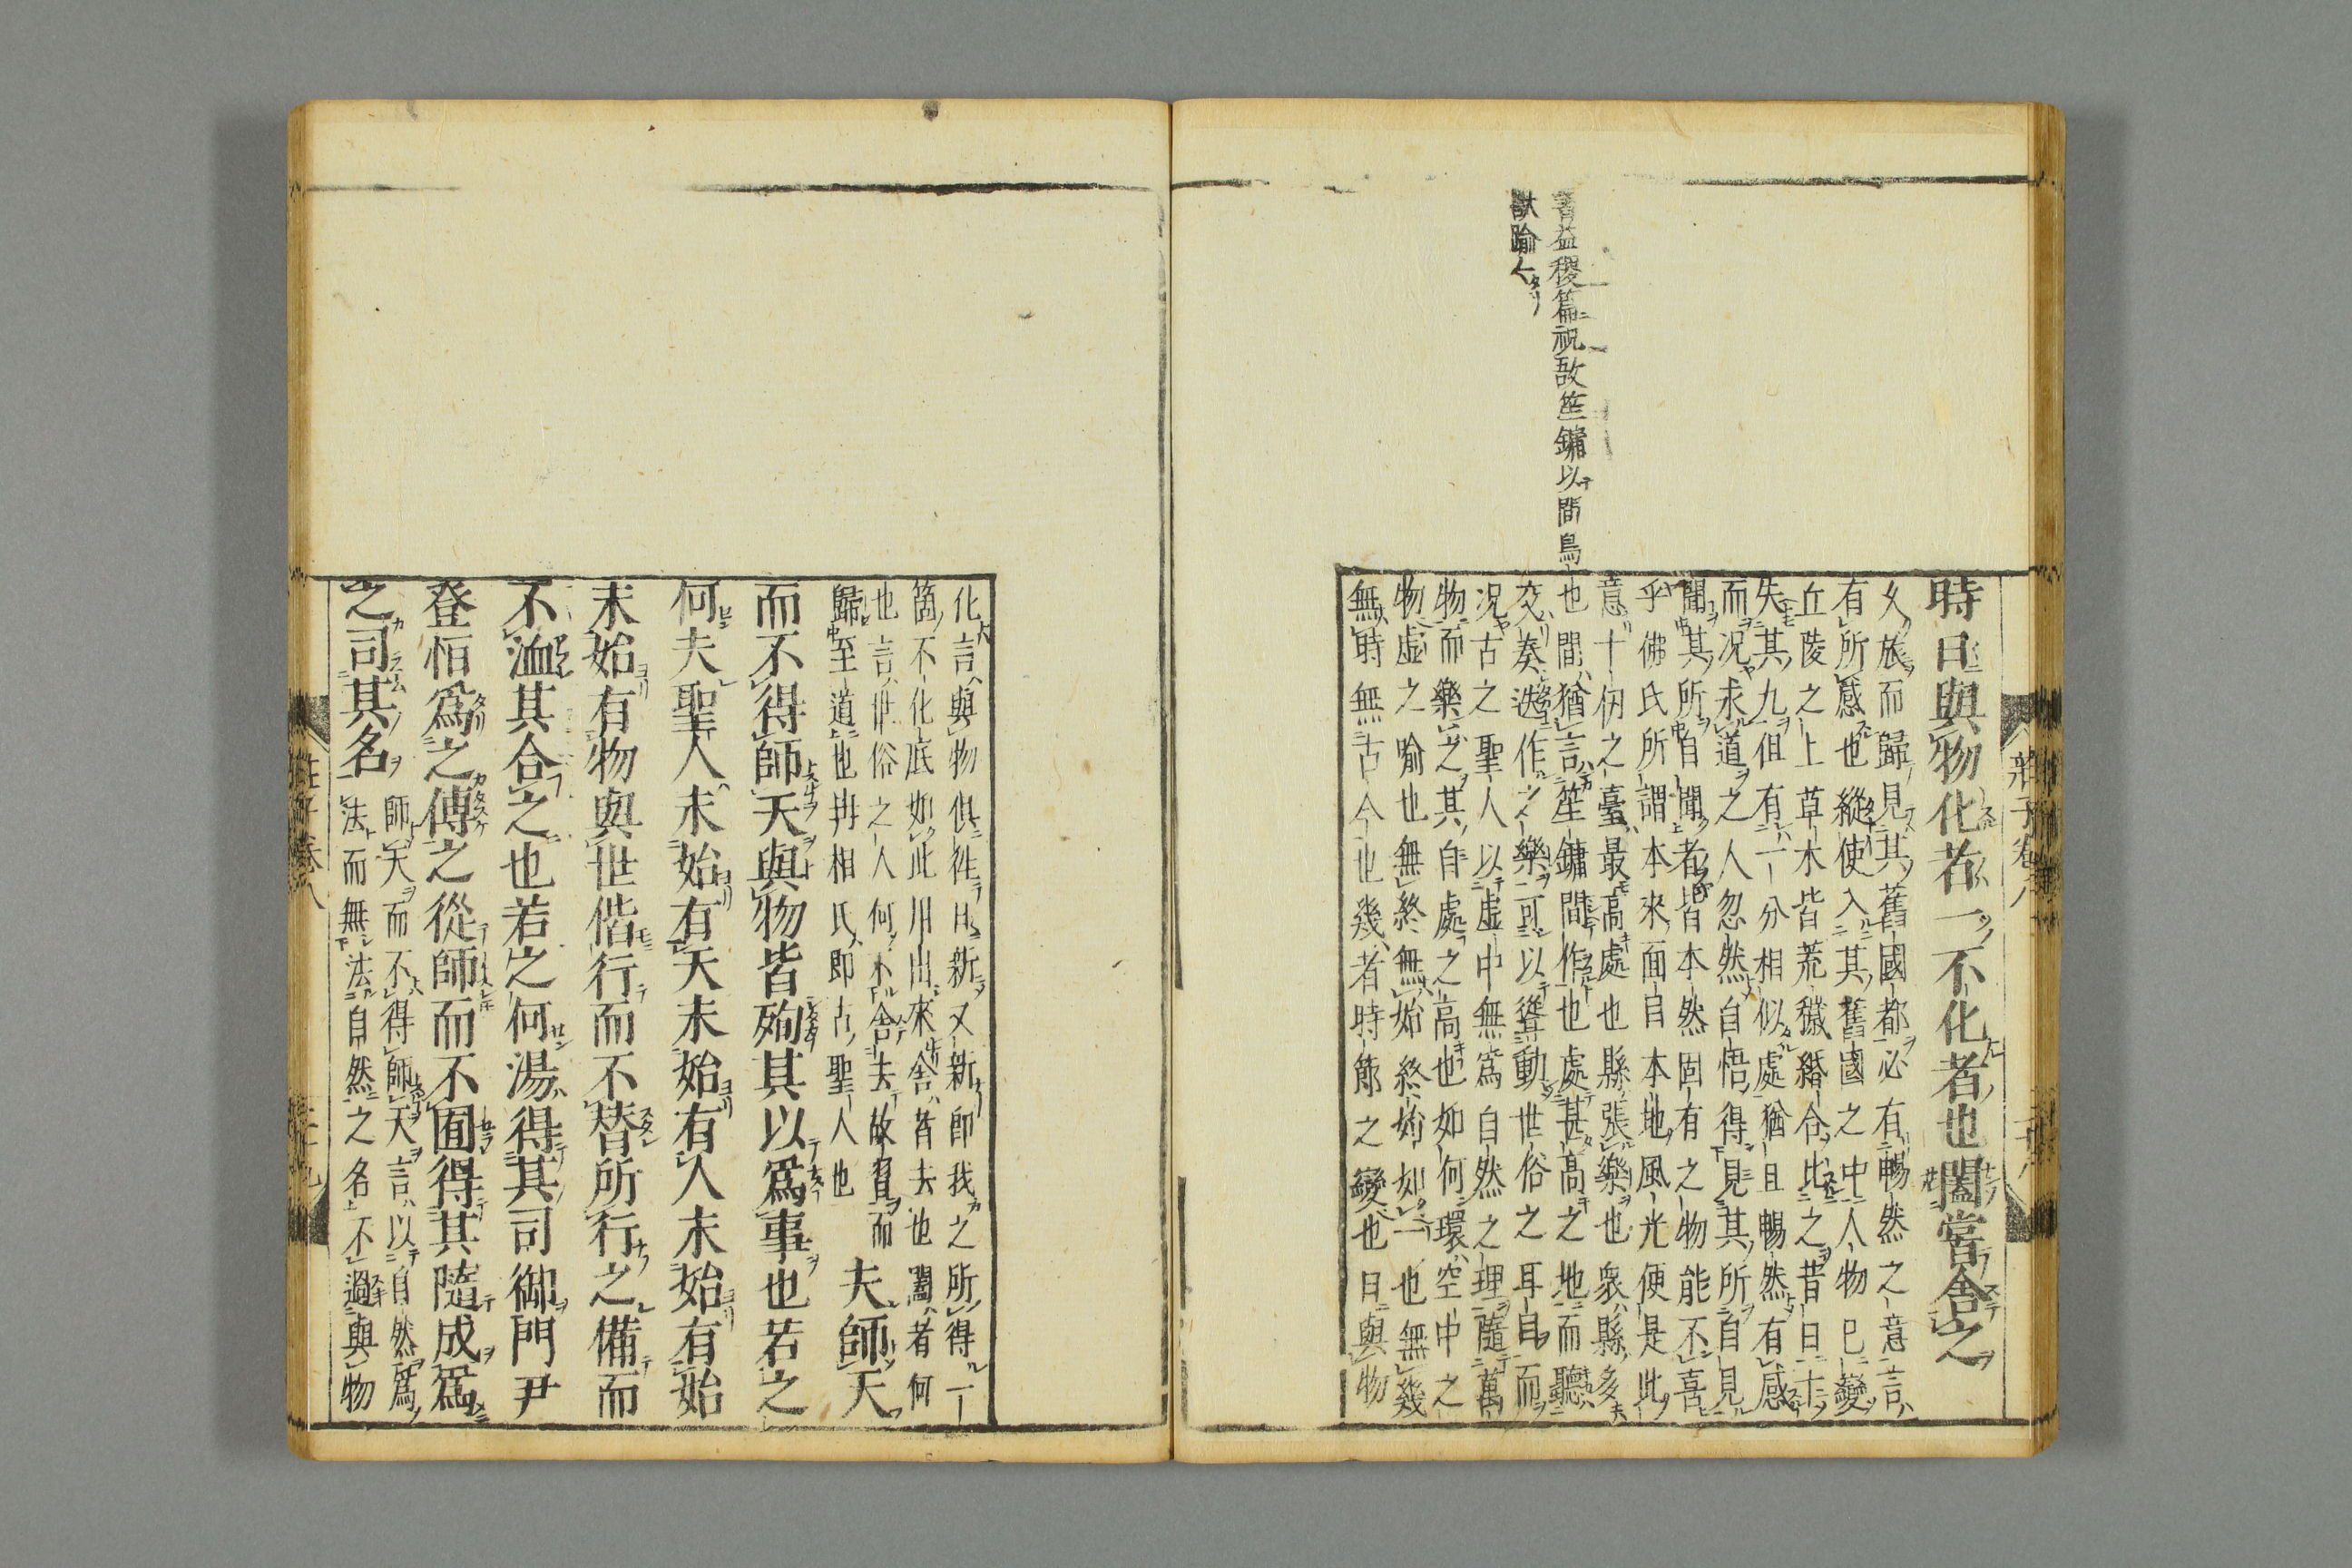 書益稷篇祝敔笙鏞以間鳥
獸蹌々
時日與物化者一不化者也闔嘗舍之
久旅而歸見其舊國都必有暢然之意言
有所感也縱使入其舊國之中人物已變
丘陵之上草木皆荒穢緡合比之昔日十
失其九但有一分相似處猶且暢然有感
而况求道之人忽然自悟得見其所自見
聞其所自聞者皆本然固有之物能不喜
乎佛氏所謂本來面目本地風光便是此
意十仞之臺最高處也縣張樂也衆縣多
也間猶言笙鏞間作也處甚高之地而聽
交奏迭作之樂可以聳動世俗之耳目而
况古之聖人以虛中無爲自然之理隨萬
物而樂之其自處之高也如何環空中之
物虛之喻也無終無始終始如一也無幾
無時無古今也幾者時節之變也日與物
化言與物俱徃日新又新即我之所得一
箇不化底如此川出來舍皆夫也闔者何
也言世俗之人何不舍去故習而
歸至道也冉相氏即古聖人也
夫師天
而不得師天與物皆殉其以爲事也若之
何夫聖人未始有天未始有人未始有始
未始有物與世偕行而不替所行之備而
不洫其合之也若之何湯得其司御門尹
登恒爲之傅之從師而不囿得其隨成爲
之司其名
師天而不得師天言以自然爲
法而無法自然之名不過與物
莊子卷八